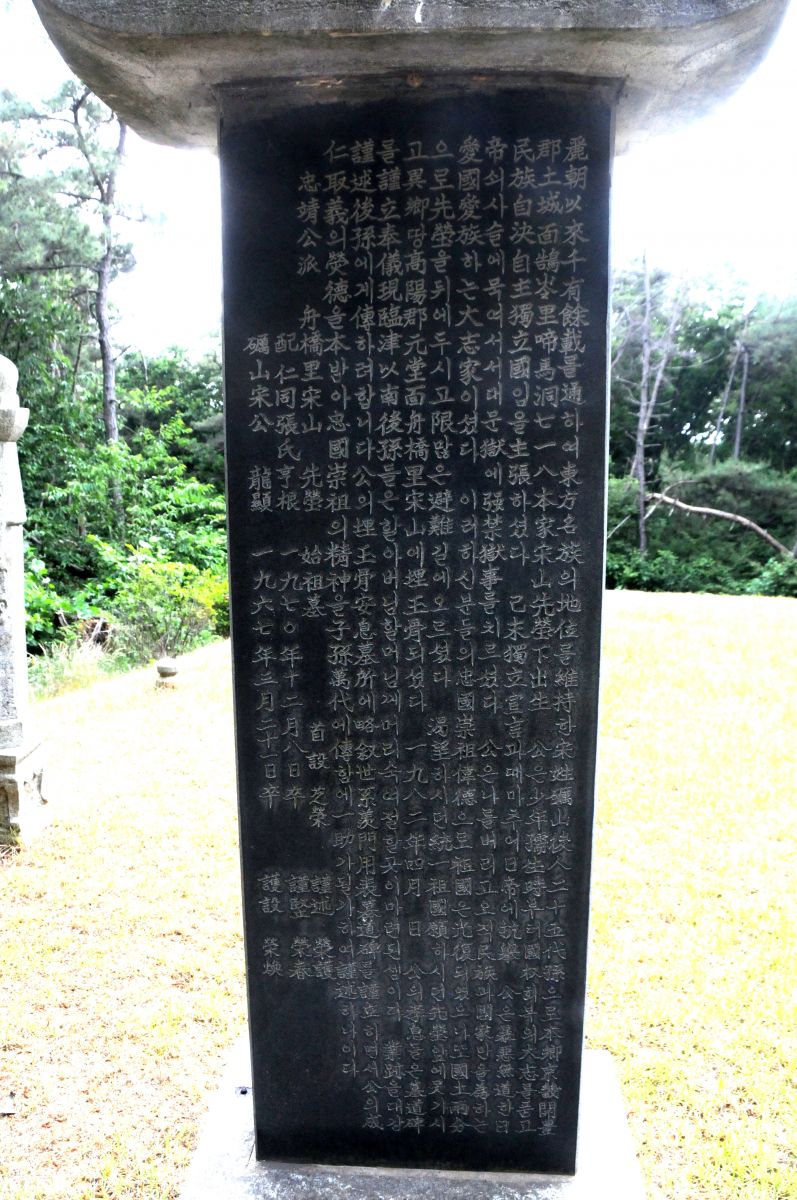 麗朝以來千有餘載를通하여東方名族의地位를維持한宋姓礪山後人二十五代孫으로本鄕京畿開豊
郡土城面鵠岺里啼馬洞七一八本家宋山先塋下出生 公은少年 時부터國权회복의大志를품고
民族自決自主獨立國임을主張하셨다 己未獨立宣言과때마추어日帝에抗 公은暴惡無道한日
帝쇠사슬에묵여서서대문獄에强禁獄事를치르셨다 公은나를버리고오직民族과國家만을爲하는
愛國愛族하는大志家이셨다 이러하신분들의忠國崇祖偉德으로祖國은光復되었으나도國土兩分
으로先塋을뒤에두시고限많은避難길에오르셨다 渴望하시던統一祖國願하시던先塋앞에못가시
고異鄕땅高陽郡元堂面舟橋里宋山에埋玉骨되셨다 一九八二年四月 日 公의孝息들은墓道碑
를謹立奉儀現臨津以南後孫들은할아버님할머님께머리숙여절할곳이마련된셈이다 業跡을대강
謹述後孫에게傳하려합니다公의埋玉骨安息墓所에略叙世系 門用表墓道碑를謹立하면서公의成
仁取義의熒德을本받아忠國崇祖의精神을子孫萬代에傳함에一助가될가하여謹述하나이다
忠靖公派 舟橋里宋山 先塋 始祖墓 首設 芝榮
配仁同張氏亨根 一九七〇年十二月八日卒 謹述 榮護
謹竪 榮春
礪山宋公 龍顯 一九六七年三月二十一日卒 謹設 榮煥